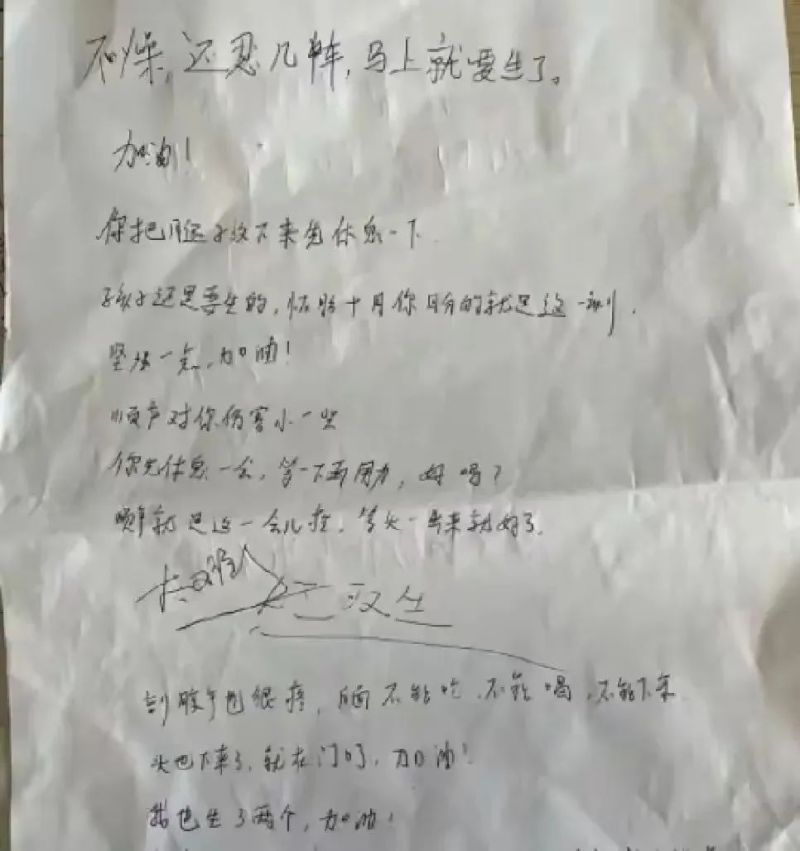 不燥，还忍几阵，马上就要生了。
加油！
你把腿子放下来先休息一下
孩子还是要生的，怀胎十月你盼的就是这一刻．
坚强一点，加油！
顺产对你伤害小一些
你先休息一会，等一下再用力，好吗？
顺产就是这一会儿疼，等头一出来就好了．
没生
剖腹产也很疼，后面不能吃．不能喝．不能下来
头也下来了，就在门口了，加油！
我也生了两个，加油！